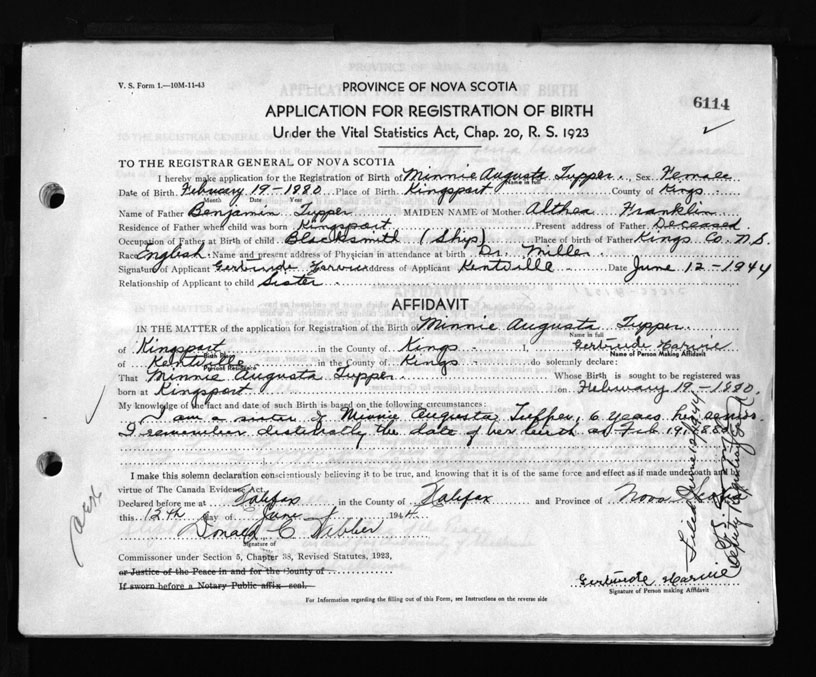 V. S. Form 1.—10M-11-43
PROVINCE OF NOVA SCOTIA
6114
APPLICATION FOR REGISTRATION OF BIRTH
Under the Vital Statistics Act, Chap. 20, R. S. 1923
TO THE REGISTRAR GENERAL OF NOVA SCOTIA
I hereby make application for the Registration of Birth of Minnie Augusta Tupper. Sex Female
Name in full
Date of Birth. February 19-1880 Place of Birth. Kingsport County of Kings
Month Date Year
Name of Father Benjamin Tupper MAIDEN NAME of Mother. Althea Franklin
Residence of Father when child was born Kingsport Present address of Father Deceased
Occupation of Father at Birth of child. Blacksmith (Ship) Place of birth of Father Kings Co. N.S.
Race English Name and present address of Physician in attendance at birth Dr. Miller
Signature of Applicant Gertrude Harvie Address of Applicant Kentville Date June 12-1944
Relationship of Applicant to child Sister
AFFIDAVIT
IN THE MATTER of the application for Registration of the Birth of Minnie Augusta Tupper
Name in full
of Kingsport in the County of Kings I, Gertrude Harvie
Birth Place Name of Person Making Affidavit
of Kentville in the County of Kings do solemnly declare:
Persons Residence
That Minnie Augusta Tupper Whose Birth is sought to be registered was
born at Kingsport on February 19-1880.
My knowledge of the fact and date of such Birth is based on the following circumstances:
I am a sister of Minnie Augusta Tupper, 6 years her senior
I remember distinctly the date of her birth as Feb. 19, 1880
I make this solemn declaration conscientiously believing it to be true, and knowing that it is of the same force and effect as if made under oath and by
virtue of The Canada Evidence Act.
Declared before me at Halifax in the County of Halifax and Province of Nova Scotia
this 12th day of June 1944
Donald C Webber
Signature of
Commissioner under Section 5, Chapter 38, Revised Statutes, 1923,
or Justice of the Peace in and for the County of
If sworn before a Notary Public affix seal.
Gertrude Harvie
Signature of Person making Affidavit
For Information regarding the filling out of this Form, see Instructions on the reverse side
Filed June 12, 1944
Deputy Registrar General